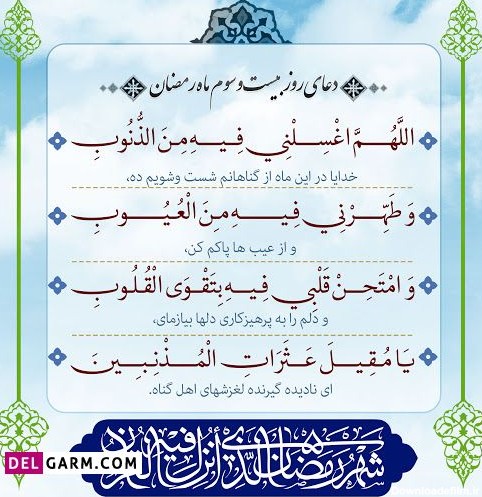 دعای روز بیست و سوم ماه رمضان
اللَّهُمَّ اغْسِلْنِي فِيهِ مِنَ الذُّنُوبِ
خدایا در این ماه از گناهانم شست وشویم ده،
وَ طَهِّرْنِي فِيهِ مِنَ الْعُيُوبِ
و از عیب ها پاکم کن،
وَ امْتَحِنْ قَلْبِي فِيهِ بِتَقْوَى الْقُلُوبِ
و دَلم را به پرهیزکاری دلها بیازمای،
يَا مُقِيلَ عَثَرَاتِ الْمُذْنِبِينَ
ای نادیده گیرنده لغزشهای اهل گناه.
شَهْرُ رَمَضَانَ الَّذِي أُنْزِلَ فِيهِ الْقُرْآنُ
DELGARM.COM